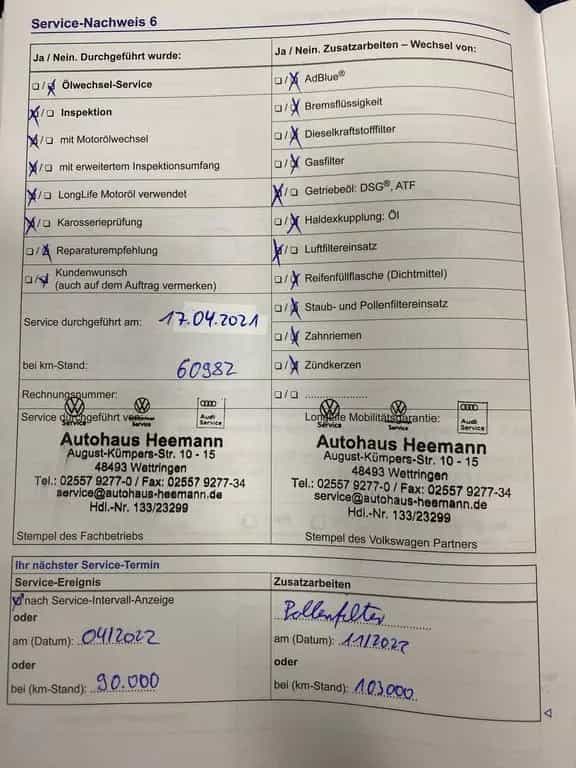 Service-Nachweis 6
Ja / Nein. Durchgeführt wurde:
Ölwechsel-Service
Inspektion
mit Motorölwechsel
mit erweitertem Inspektionsumfang
LongLife Motoröl verwendet
Karosserieprüfung
Reparaturempfehlung
Kundenwunsch
(auch auf dem Auftrag vermerken)
Service durchgeführt am: 17.04.2021
bei km-Stand: 60982
Rechnungsnummer:
Service durchgeführt von:
Service
Service
Audi
Service
Autohaus Heemann
August-Kümpers-Str. 10 - 15
48493 Wettringen
Tel.: 02557 9277-0 / Fax: 02557 9277-34
service@autohaus-heemann.de
Hdl.-Nr. 133/23299
Stempel des Fachbetriebs
Ja / Nein. Zusatzarbeiten – Wechsel von:
AdBlue®
Bremsflüssigkeit
Dieselkraftstofffilter
Gasfilter
Getriebeöl: DSG®, ATF
Haldexkupplung: Öl
Luftfiltereinsatz
Reifenfüllflasche (Dichtmittel)
Staub- und Pollenfiltereinsatz
Zahnriemen
Zündkerzen
LongLife Mobilitätsgarantie:
Service
Service
Audi
Service
Autohaus Heemann
August-Kümpers-Str. 10 - 15
48493 Wettringen
Tel.: 02557 9277-0 / Fax: 02557 9277-34
service@autohaus-heemann.de
Hdl.-Nr. 133/23299
Stempel des Volkswagen Partners
Ihr nächster Service-Termin
Service-Ereignis
nach Service-Intervall-Anzeige
oder
am (Datum): 04/2022
oder
bei (km-Stand): 90.000
Zusatzarbeiten
Pollenfilter
am (Datum): 11/2022
oder
bei (km-Stand): 103000